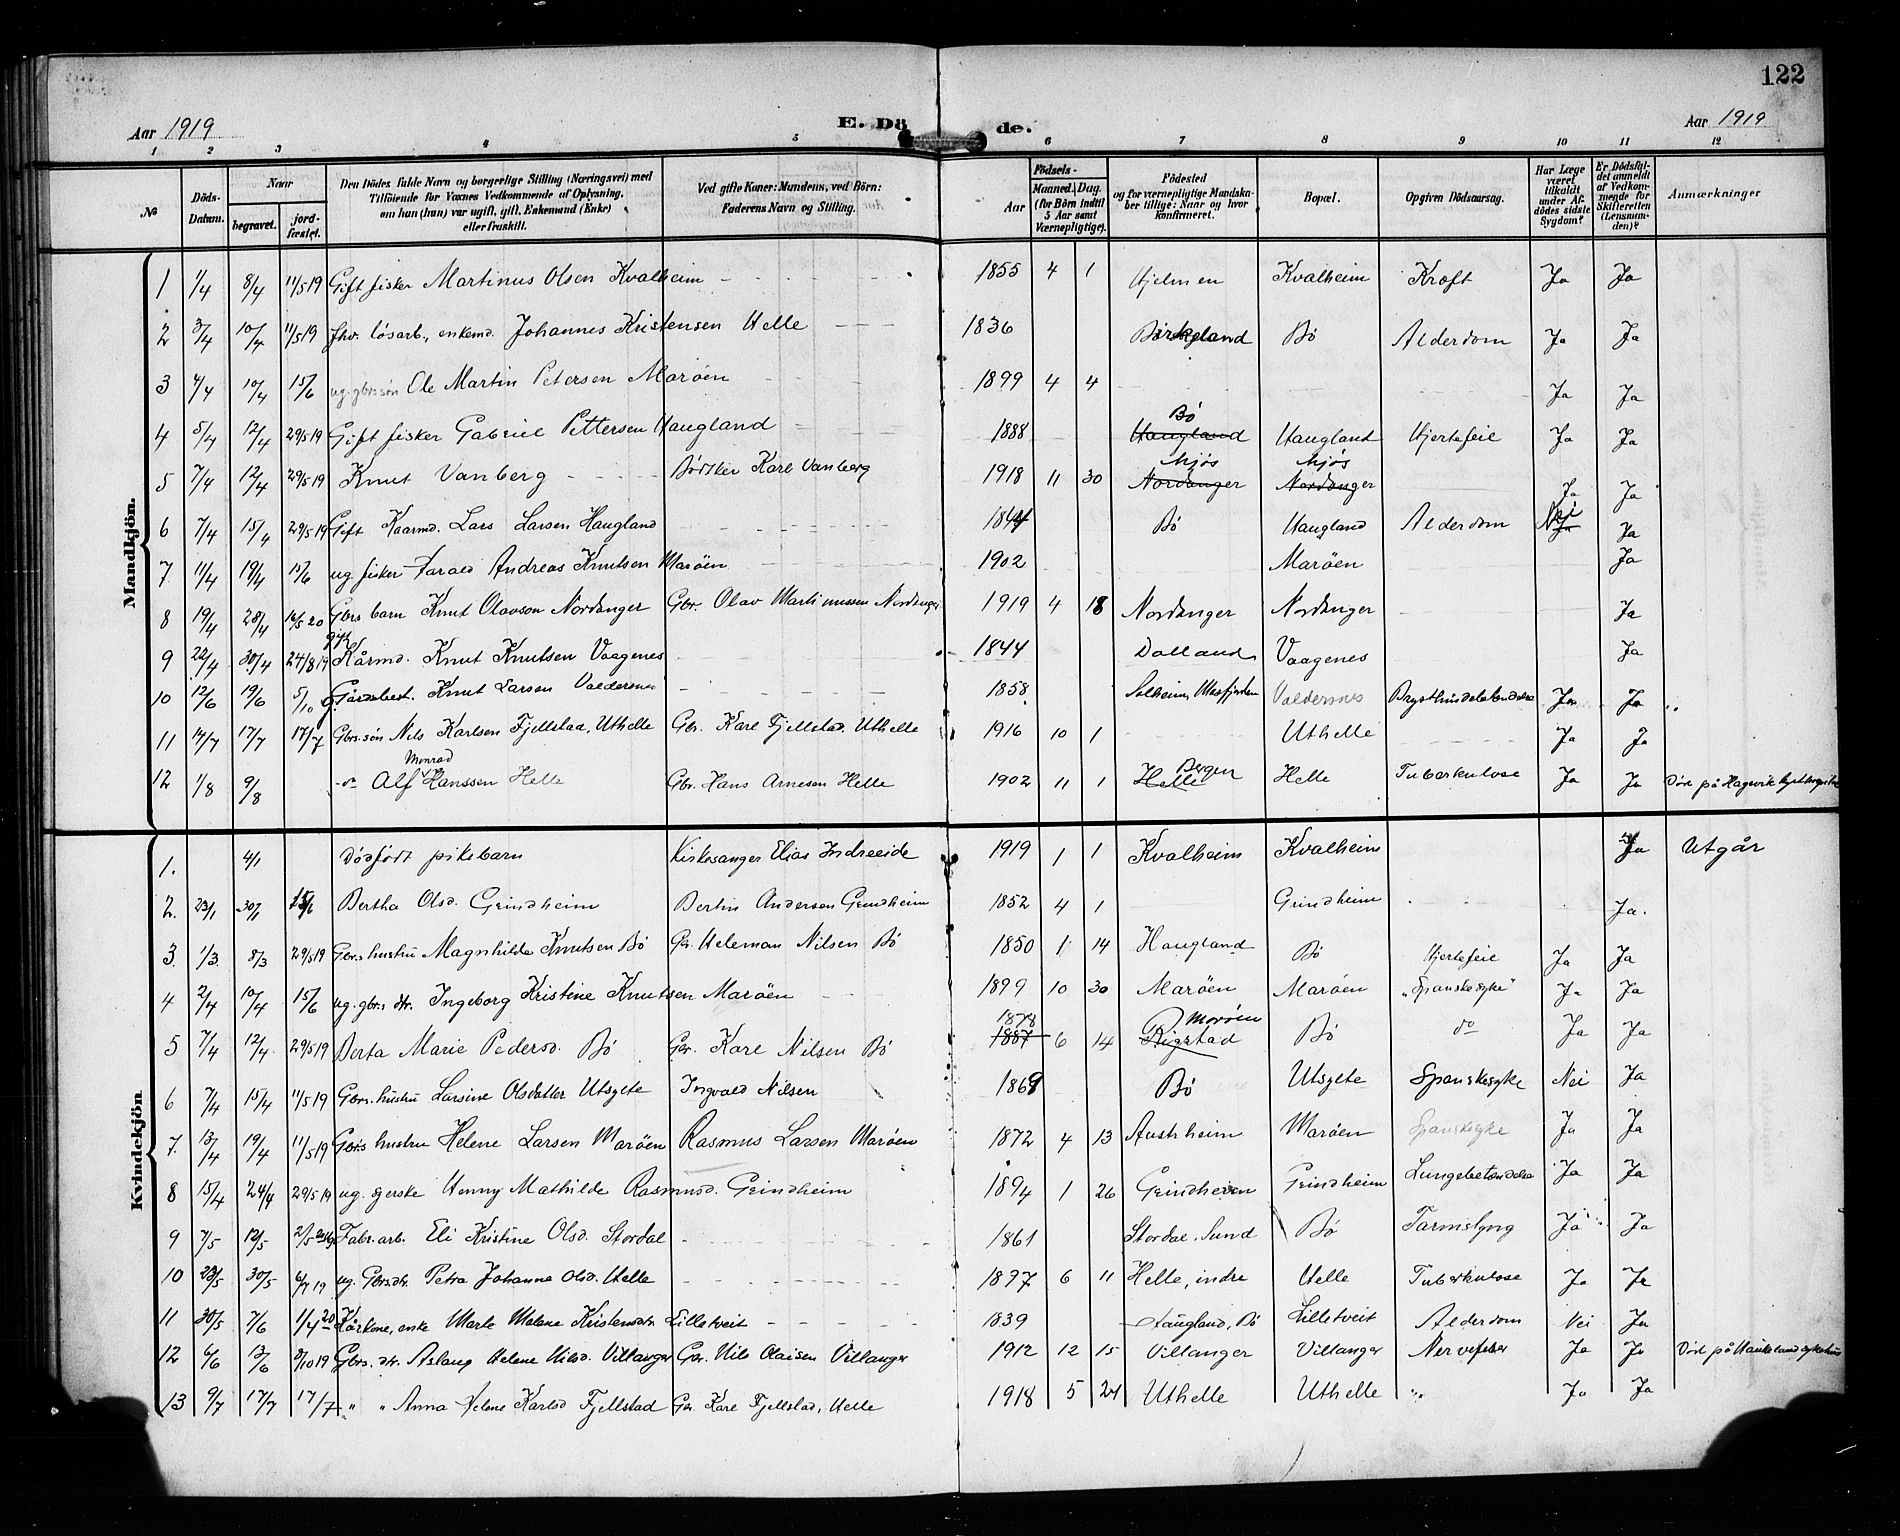 122
Aar 1919 E. Dö de. Aar 1919
1 2 3 4 5 6 7 8 9 10 11 12
№ Döds-Datum. Naar begravet. jord-fæstet. Den Dödes fulde Navn og borgerlige Stilling (Næringsvei) med Tilföiende for Voxnes Vedkommende af Oplysning, om han (hun) var ugift, gift, Enkemand (Enke) eller fraskilt. Ved gifte Koner: Mandens, ved Börn: Faderens Navn og Stilling. Födsels- Aar Maaned. Dag. (for Börn indtil 5 Aar samt Værnepligtige). Födested og for værnepligtige Mandskaber tillige: Naar og hvor konfirmeret. Bopæl. Opgiven Dödsaarsag. Har Læge været tilkaldt under Afdödes sidste Sygdom? Er Dödsfaldet anmeldt af Vedkommende for Skifteretten (Lensmanden)? Anmærkninger
Mandkjön.
1 1/4 8/4 11/5 19 Gift fisker Martinus Olsen Kvalheim 1855 4 1 Hjelmen Kvalheim Kræft Ja Ja
2 3/4 10/4 11/5 19 fhv. løsarb., enkemd. Johannes Kristensen Helle 1836 Birkeland Bö Alderdom Ja Ja
3 4/4 10/4 15/6 ug. gbrs søn Ole Martin Petersen Maröen 1899 4 4 Ja Ja
4 5/4 12/4 29/5 19 Gift fisker Gabriel Pettersen Haugland 1888 Bö Haugland Haugland Hjertefeil Ja Ja
5 7/4 12/4 29/5 19 Knut Vanberg Bödker Karl Vanberg 1918 11 30 Mjös Nordanger Mjös Nordanger Ja Ja
6 7/4 15/4 29/5 19 Gift Kaarmd. Lars Larsen Haugland 1844 Bö Haugland Alderdom Nei Ja
7 11/4 19/4 15/6 ug. fisker Harald Andreas Knutsen Maröen 1902 Maröen Ja
8 19/4 28/4 16/5 20 Gbrs barn Knut Olavson Nordanger Gbr. Olav Martinussen Nordanger 1919 4 18 Nordanger Nordanger Ja
9 22/4 30/4 24/8 19 gift Kårmd. Knut Knutsen Vaagenes 1844 Dalland Vaagenes Ja
10 12/6 19/6 5/10 Knut Larsen Valdersnes 1858 Solheim, Masfjorden Valdersnes Brysthindebetendelse Ja Ja
11 14/7 17/7 17/7 Gbrs. søn Nils Karlsen Fjellstad, Uthelle Gbr. Karl Fjellstad, Uthelle 1916 10 1 Uthelle Ja Ja
12 1/8 9/8 -do- Alf Monrad Hanssen Helle Gbr. Hans Arnesen Helle 1902 11 1 Bergen Helle Helle Tuberkulose Ja Ja Död på Hagevik kysthospital
Kvindekjön
1. 4/1 Dödfödt pikebarn Kirkesanger Elias Indreeide 1919 1 1 Kvalheim Kvalheim Ja Utgår
2. 23/1 30/1 15/6 Bertha Olsd. Grindheim Bertin Andersen Grindheim 1852 4 1 Grindheim Ja.
3. 1/3 8/3 29/5 19 Gbrs hustru Magnhilda Knutsen Bö Gbr. Heleman Nilsen Bö 1850 1 14 Haugland Bö Hjertefeil Ja Ja
4 2/4 10/4 15/6 ug. gbrs dtr. Ingeborg Kristine Knutsen Maröen 1899 10 30 Maröen Maröen "Spanskesyke" Ja Ja
5 7/4 12/4 29/5 19 Berta Marie Pedersd. Bö Gbr. Karl Nilsen Bö 1878 1887 6 14 Maröen Rigstad Bö do Ja Ja
6 7/4 15/4 11/5 19 Gbrs. hustru Larsine Olsdatter Utsylte Ingvald Nilsen 1869 Bö Utsylte Spanskesyke Nei Ja
7. 13/4 19/4 11/5 19 Gbrs hustru Helene Larsen Maröen Rasmus Larsen Maröen 1872 4 13 Austrheim Maröen Spanskesyke Ja Ja
8 15/4 24/4 29/5 19 ug. syerske Henny Mathilde Rasmusd. Grindheim 1894 1 26 Grindheim Grindheim Lungebetændelse Ja Ja
9 7/5 12/5 Fabr. arb. Eli Kristine Olsd. Stordal 1861 Stordal, Sund Bö Tarmslyng Ja Ja
10 23/5 30/5 6/7 19 ug. Gbrs. dtr. Petra Johanna Olsd. Helle 1897 6 11 Helle, indre Helle Tuberkulose Ja Ja
11 30/5 7/6 1/4 20 Kårkone, enke Marte Malene Kristensdtr. Lilletveit 1839 Haugland, Bö Lilletveit Alderdom Nei Ja
12 6/6 13/6 5/10 19 Gbrs. dtr. Aslaug Helene Nilsd. Villanger Gbr. Nils Olaisen Villanger 1912 12 15 Villanger Villanger Nervefeber Ja Ja Död på Haukeland sykehus
13 9/7 17/7 17/7 " " Anna Helene Karlsd Fjellstad Gbr. Karl Fjellstad, Helle 1918 5 24 Uthelle Uthelle Ja Ja